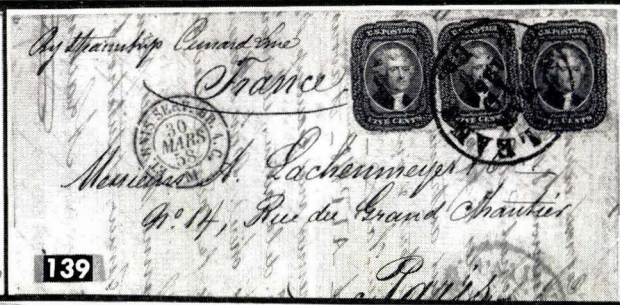 By steamship Cunard Line
France
U.S. POSTAGE
FIVE CENTS
U.S. POSTAGE
FIVE CENTS
U.S. POSTAGE
FIVE CENTS
SERV. BR. A.C.
30
MARS
58
Messieurs A. Lachenmeyer
No. 14, Rue du Grand Chantier
Paris
139